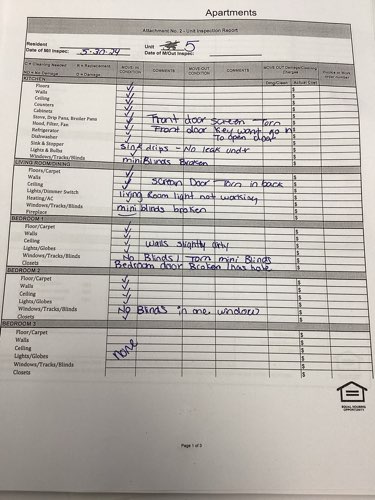 Apartments
Attachment No. 2 - Unit Inspection Report
Resident
Date of MI Inspec: 5-30-24
Unit # 5
Date of M/Out Inspec:
C = Cleaning Needed R = Replacement
ND = No Damage D = Damage
MOVE IN CONDITION COMMENTS MOVE OUT CONDITION COMMENTS MOVE OUT Damage/Cleaning Charges
Actual Cost
KITCHEN
Floors ✓ $
Walls ✓ $
Ceiling ✓ $
Counters ✓ $
Cabinets ✓ $
Stove, Drip Pans, Broiler Pans ✓ Front door screen - Torn $
Hood, Filter, Fan ✓ Front door key wont go in $
Refrigerator ✓ To open door $
Dishwasher $
Sink & Stopper Sink drips - No leak under $
Lights & Bulbs ✓ $
Windows/Tracks/Blinds mini Blinds Broken $
LIVING ROOM/DINING
Floors/Carpet ✓ $
Walls ✓ $
Ceiling ✓ Screen Door - Torn in back $
Lights/Dimmer Switch living Room light not working $
Heating/AC ✓ $
Windows/Tracks/Blinds mini blinds broken $
Fireplace $
BEDROOM 1
Floor/Carpet ✓ $
Walls ✓ walls slightly dirty $
Ceiling ✓ $
Lights/Globes ✓ $
Windows/Tracks/Blinds No Blinds / Torn mini Blinds $
Closets Bedroom door Broken / has hole $
BEDROOM 2
Floor/Carpet ✓ $
Walls ✓ $
Ceiling ✓ $
Lights/Globes ✓ $
Windows/Tracks/Blinds No Blinds in one window $
Closets ✓ $
BEDROOM 3
Floor/Carpet $
Walls $
Ceiling none $
Lights/Globes $
Windows/Tracks/Blinds $
Closets $
EQUAL HOUSING
OPPORTUNITY
Page 1 of 3